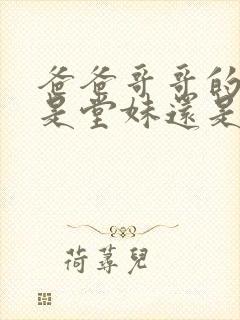 爸爸哥哥的
是堂妹還是
荷蕁兒